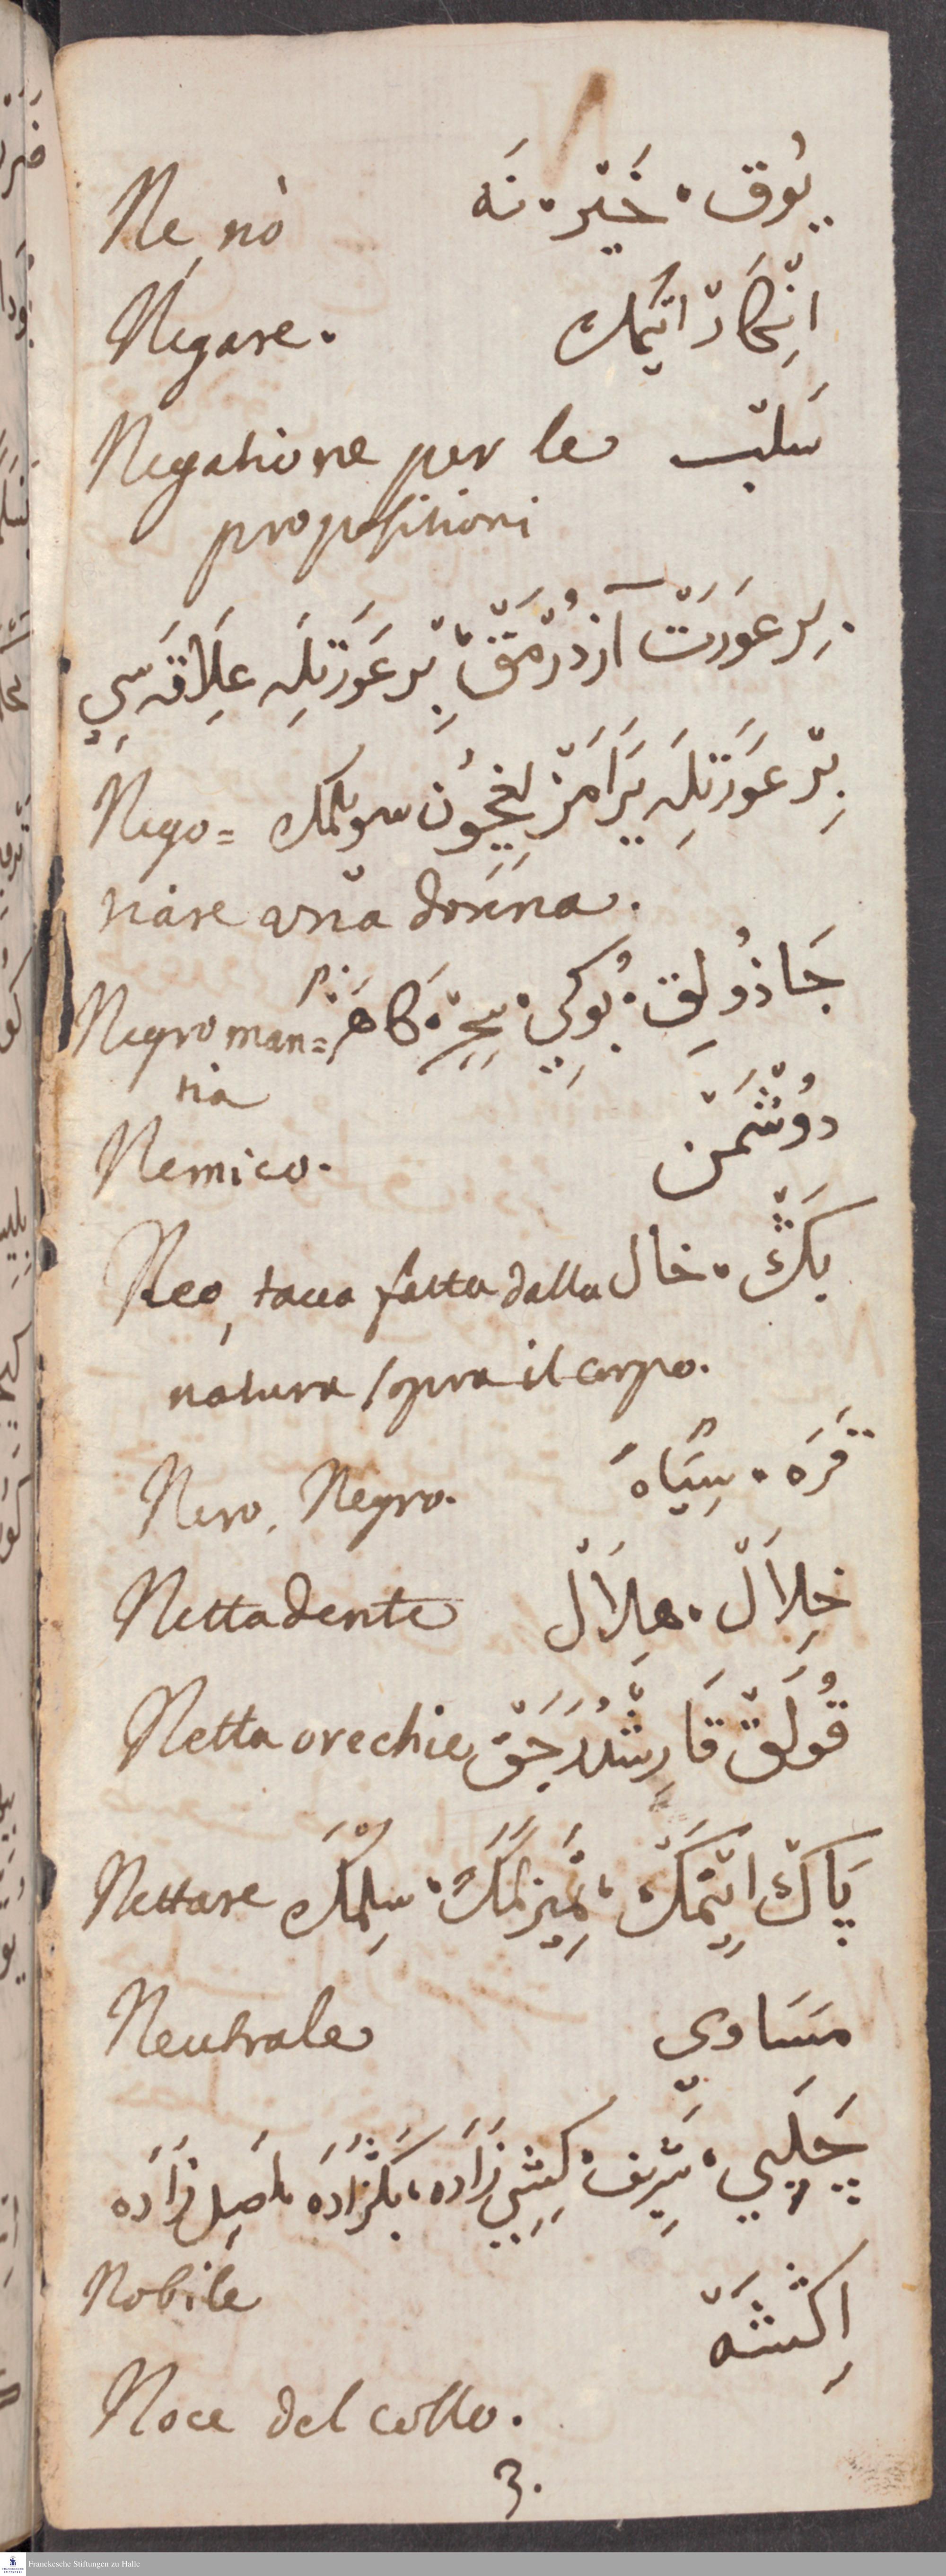 Ne, nò يُوق · خَيْر · نَه
Negare. اِنْكَارْ اتْمَك
Negatione per le سَلْب
propositioni
بِر عَوَرَتْ آزدُرْمَقْ · بِرْ عَوَرَتِلَه عِلَاقَه سِي
Nego= بِرْ عَوَرَتِلَه يَرَامَزْ ايچُون سويلمك
tiare una donna.
Negroman= جَاذُولِق · بُوكِي · سِحِرْ · كَاهَنْ
tia
Nemico. دُوشْمَنْ
Neo, tacca fatta dalla بَكْ · خال
natura sopra il corpo.
Nero, Negro. قَرَه · سِيَاه
Nettadente خِلَالْ · هِلَالْ
Netta orechie قُولَقْ قَارِشْدُرَجَقْ
Nettare پَاكْ ايتْمَكْ · تَمِيزلَمَكْ · سِلْمَكْ
Neutrale مسَاوي
چَلَبِي · شَرِيف · كِشِي زَادَه · بَكْزَادَه · اصِل زَادَه
Nobile
اِكْشَه
Noce del collo.
3.
Franckesche Stiftungen zu Halle